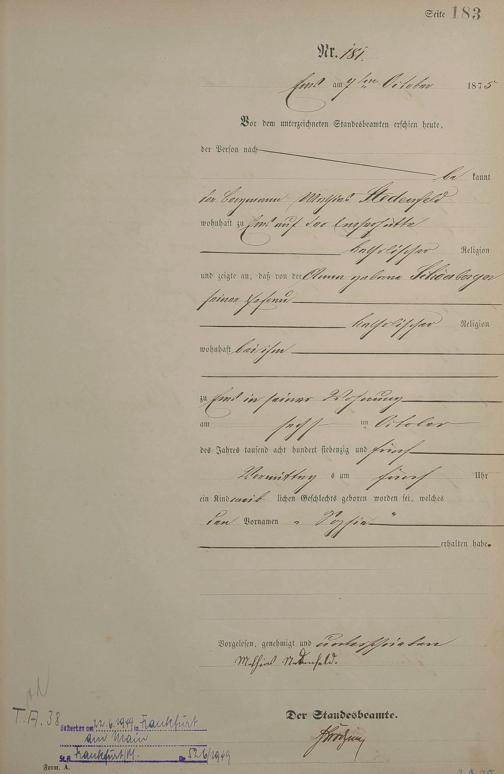 Seite 183
Nr. 181.
Ems am 7ten October 1875
Vor dem unterzeichneten Standesbeamten erschien heute,
der Person nach
be kannt
der Bergmann Mathias Stedenfeld
wohnhaft zu Ems auf der Emserhütte
katholischer Religion
und zeigte an, daß von der Anna geborne Schönberger
seiner Ehefrau
katholischer Religion
wohnhaft bei ihm
zu Ems in seiner Wohnung
am sechs ten October
des Jahres tausend acht hundert siebenzig und fünf
Vormittags um fünf Uhr
ein Kind weib lichen Geschlechts geboren worden sei, welches
den Vornamen „Sophia"
erhalten habe.
Vorgelesen, genehmigt und unterschrieben
Mathias
Der Standesbeamte.
T.A. 38
Gestorben am 22.6.1949 in Frankfurt
am Main
St.A. Frankfurt/M. Nr. 526/1949
Form. A.